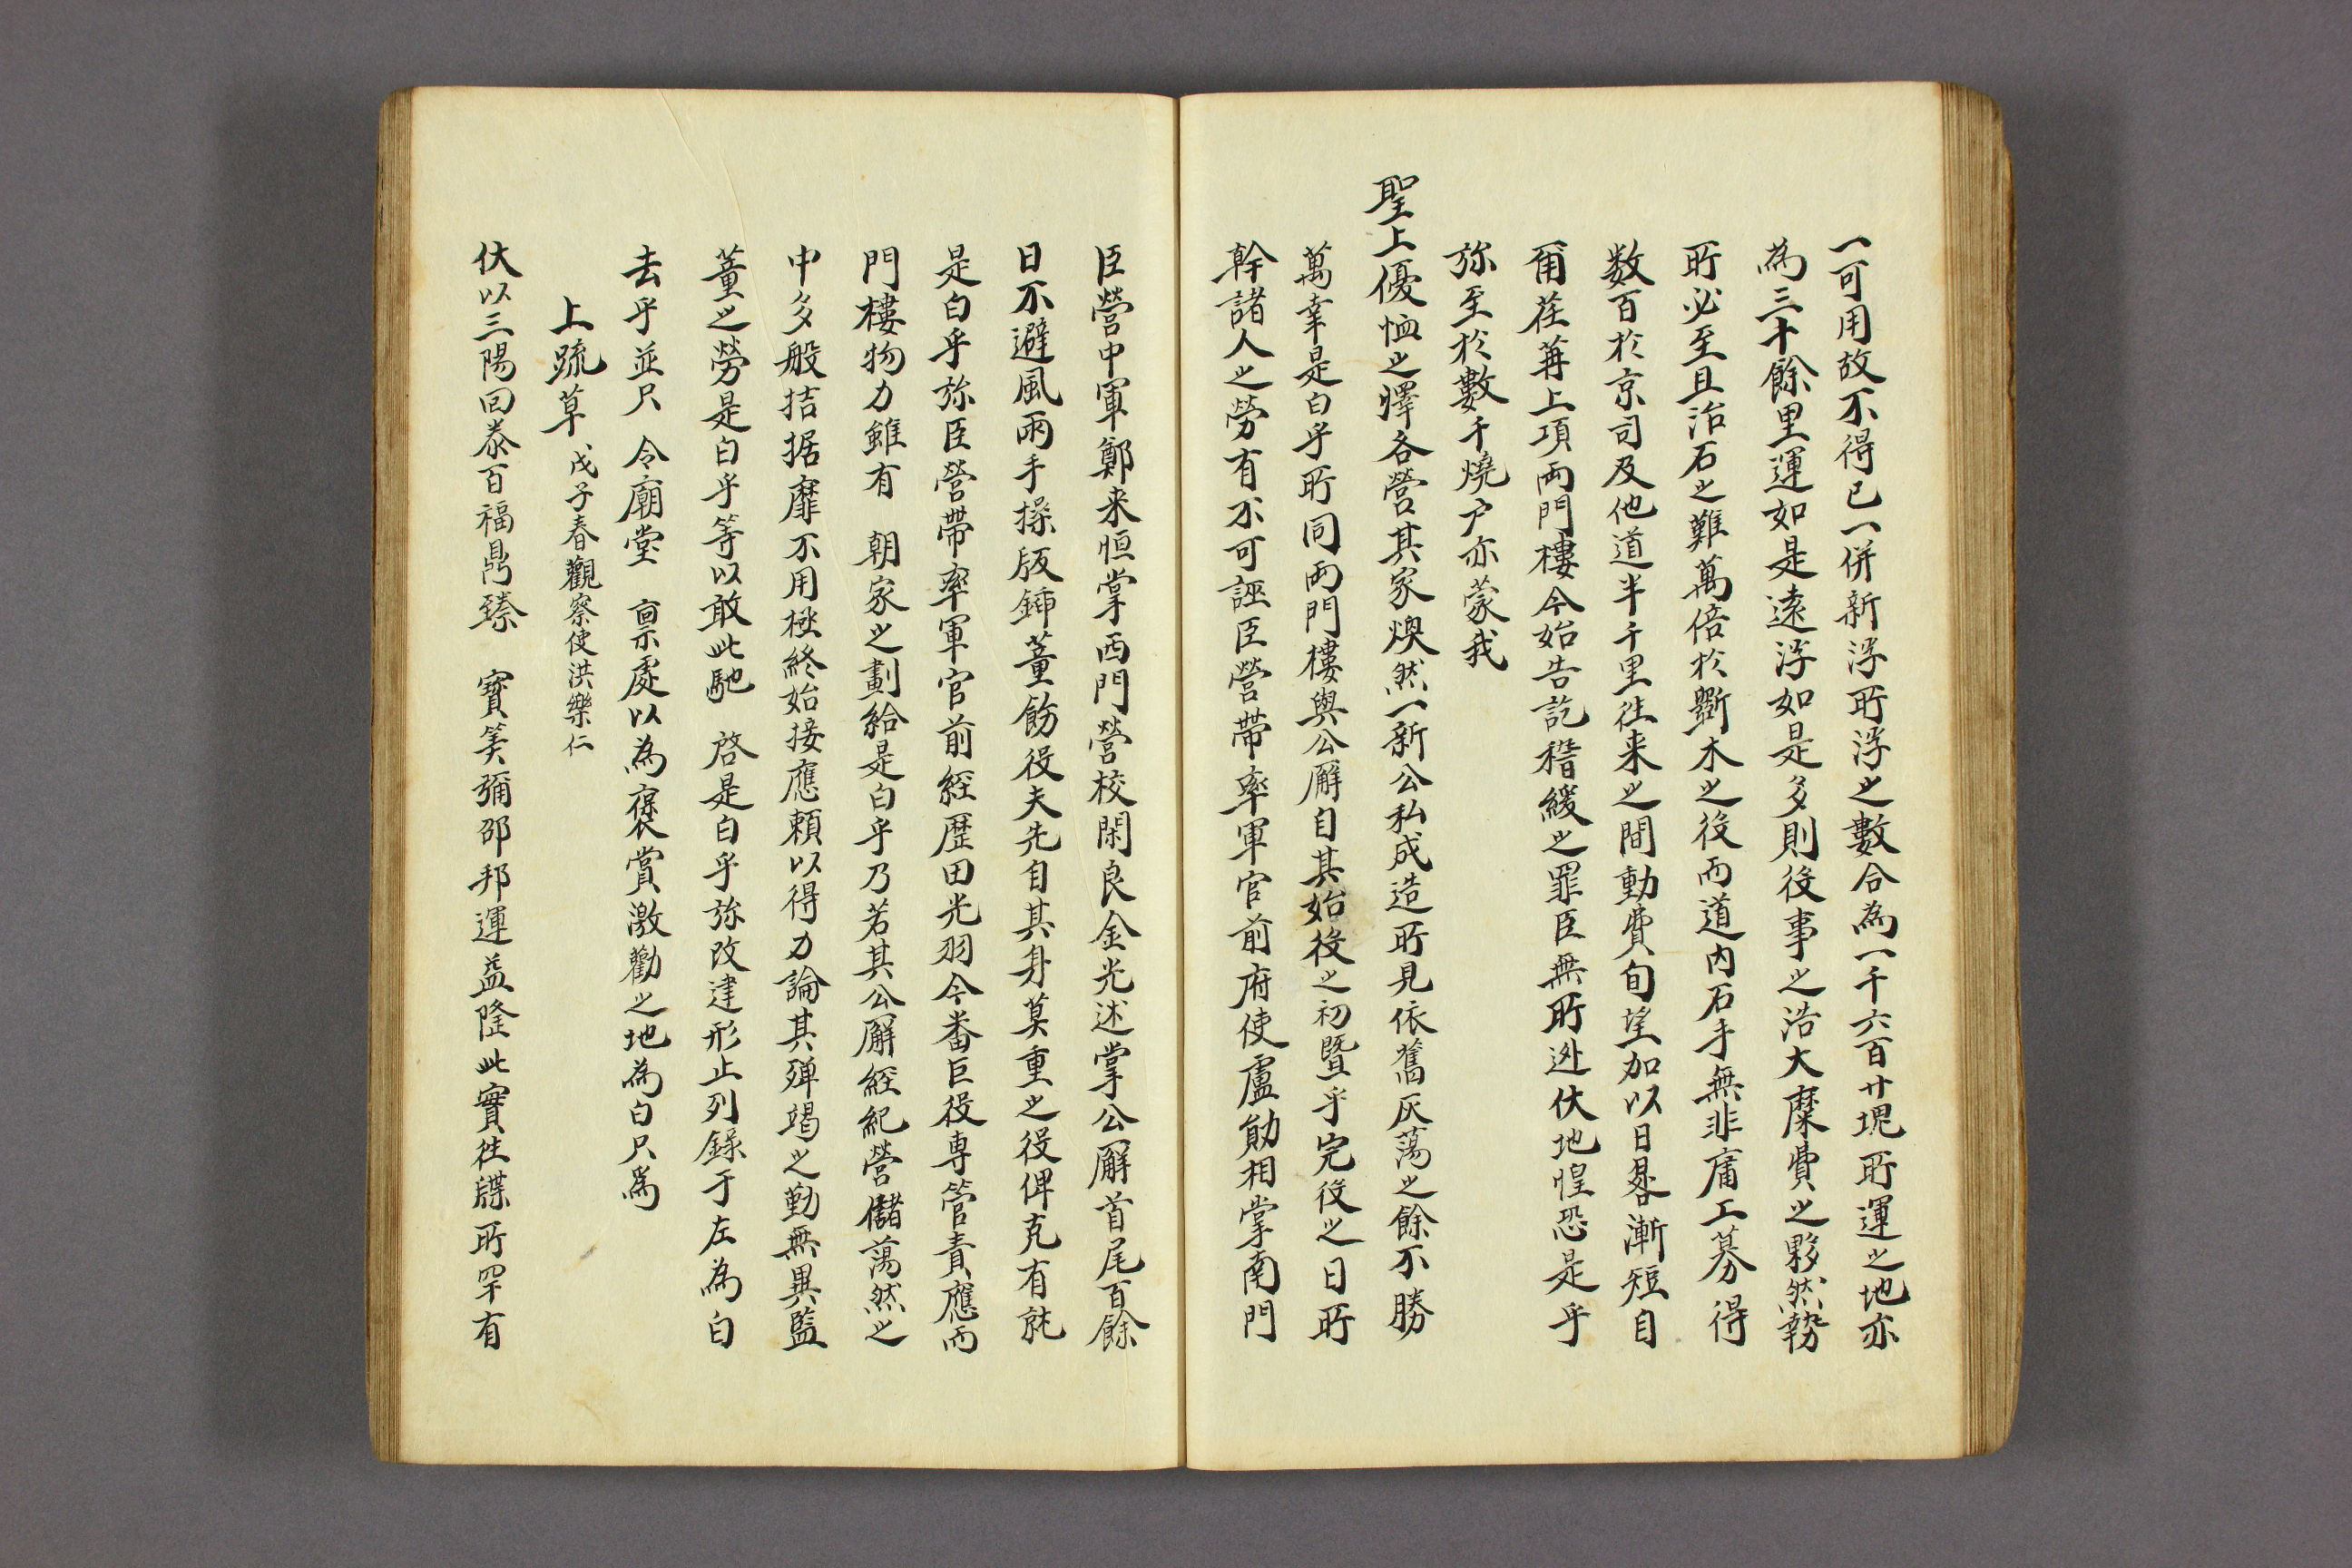 一可用故不得已一併新浮所浮之數合為一千六百廿塊所運之地亦
為三十餘里運如是遠浮如是多則役事之浩大糜費之夥然勢
所必至且治石之難萬倍於斲木之役而道內石手無非庸工募得
数百於京司及他道半千里徃来之間動費旬望加以日晷漸短自
爾荏苒上項両門樓今始告訖稽緩之罪臣無所迯伏地惶恐是乎
弥至於數千燒戶亦蒙我
聖上優恤之澤各營其家煥然一新公私成造所見依舊灰蕩之餘不勝
萬幸是白乎所同両門樓與公廨自其始役之初曁乎完役之日所
幹諸人之勞有不可誣臣營帶率軍官前府使盧勛相掌南門
臣營中軍鄭来恒掌西門營校閑良金光述掌公廨首尾百餘
日不避風雨手操版鍤董飭役夫先自其身莫重之役俾克有訖
是白乎弥臣營帶率軍官前經歷田光羽今番巨役專管責應而
門樓物力雖有 朝家之劃給是白乎乃若其公廨經紀營儲蕩然之
中多般拮据靡不用極終始接應頼以得力論其殫竭之勤無異監
董之勞是白乎等以敢此馳 啓是白乎弥改建形止列錄于左為白
去乎並只 令廟堂 稟處以為褒賞激勸之地為白只為
上疏草 戊子春觀察使洪樂仁
伏以三陽回泰百福鼎臻 寶筭彌邵邦運益隆此實徃牒所罕有